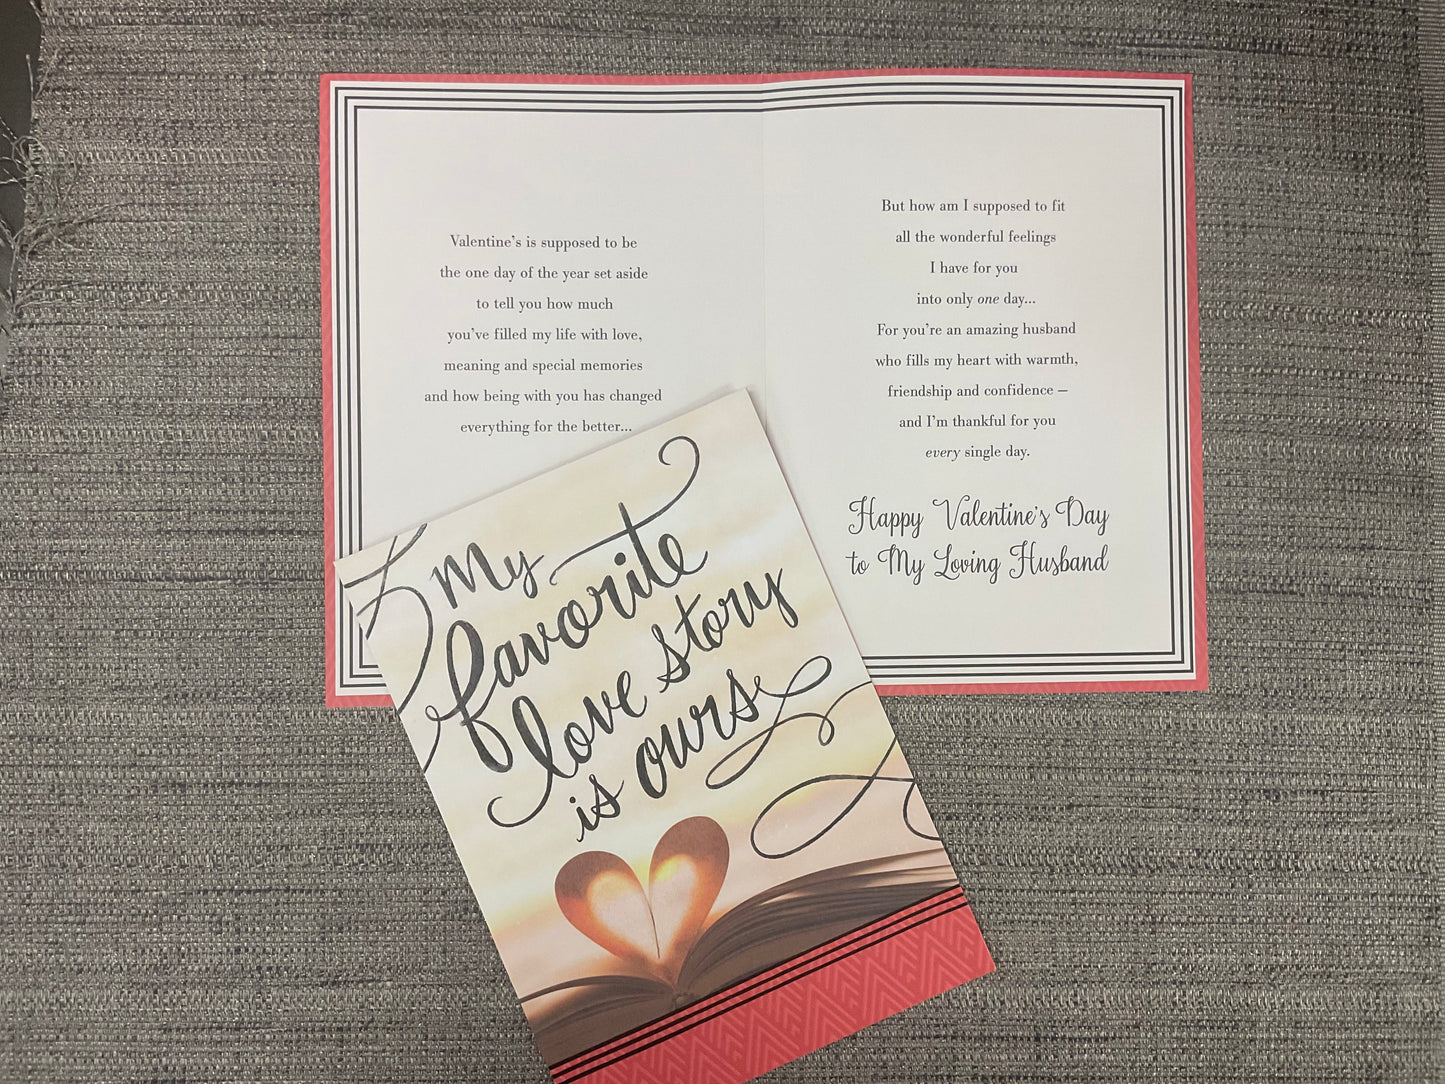 Valentine's is supposed to be
the one day of the year set aside
to tell you how much
you've filled my life with love,
meaning and special memories
and how being with you has changed
everything for the better...
But how am I supposed to fit
all the wonderful feelings
I have for you
into only one day...
For you're an amazing husband
who fills my heart with warmth,
friendship and confidence –
and I'm thankful for you
every single day.
Happy Valentine's Day
to My Loving Husband
My
favorite
love story
is ours